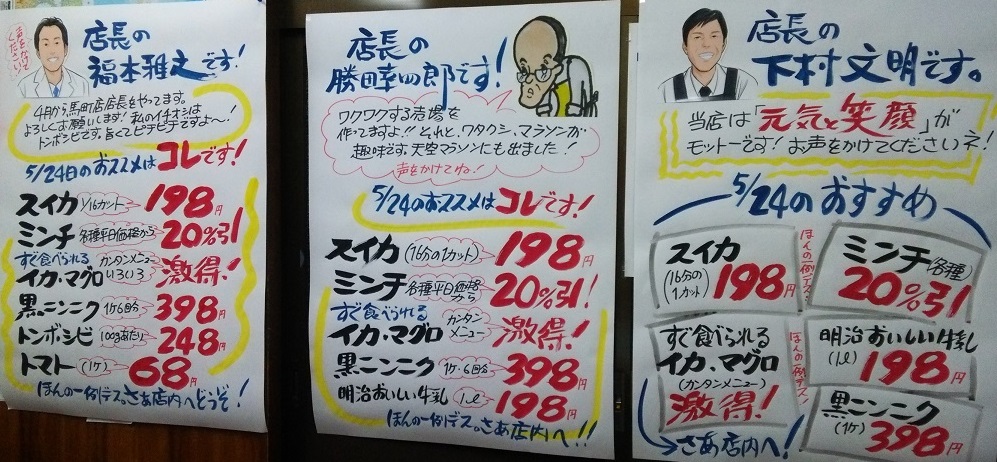 声をかけて
ください!
店長の
福本雅之です!
4月から馬町店店長をやってます。
よろしくお願いします!私のイチオシは
トンボシビです。旨くてピチピチですよ〜!
5/24日のおススメはコレです!
スイカ 1/16カット 198円
ミンチ 各種平日価格から 20%引!
すぐ食べられる カンタンメニュー
イカ・マグロ いろいろ 激得!
黒ニンニク 1ケ6回分 398円
トンボシビ 100gあたり 248円
トマト (1ケ) 68円
ほんの一例デス。さあ店内へどうぞ!
店長の
勝田幸四郎です!
ワクワクする売場を
作ってますよ!!それと、ワタクシ、マラソンが
趣味です。天空マラソンにも出ました!
声をかけてね!
5/24のおススメはコレです!
スイカ (16分の1カット) 198円
ミンチ 各種平日価格から 20%引!
すぐ食べられる
イカ・マグロ カンタンメニュー 激得!
黒ニンニク 1ケ・6回分 398円
明治おいしい牛乳 1L 198円
ほんの一例デス。さあ店内へ!!
店長の
下村文明です。
当店は「元気と笑顔」が
モットーです!お声をかけてくださいネ!
5/24のおすすめ
スイカ
(16分の1カット) 198円
ほんの一例デス!
ミンチ(各種)
20%引!
すぐ食べられる
イカ・マグロ
(カンタンメニュー)
激得!
ほんの一例デス!
明治おいしい牛乳
(1L) 198円
黒ニンニク
(1ケ) 398円
さあ店内へ!